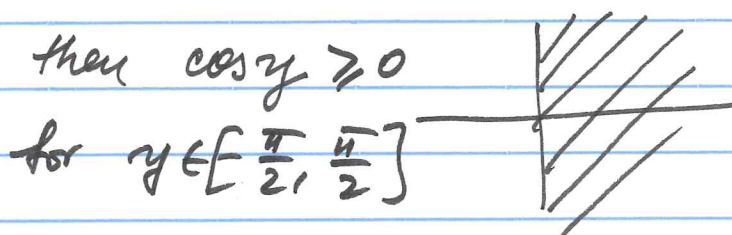 then cos y ⩾ 0
for y ∈ [-π/2, π/2]